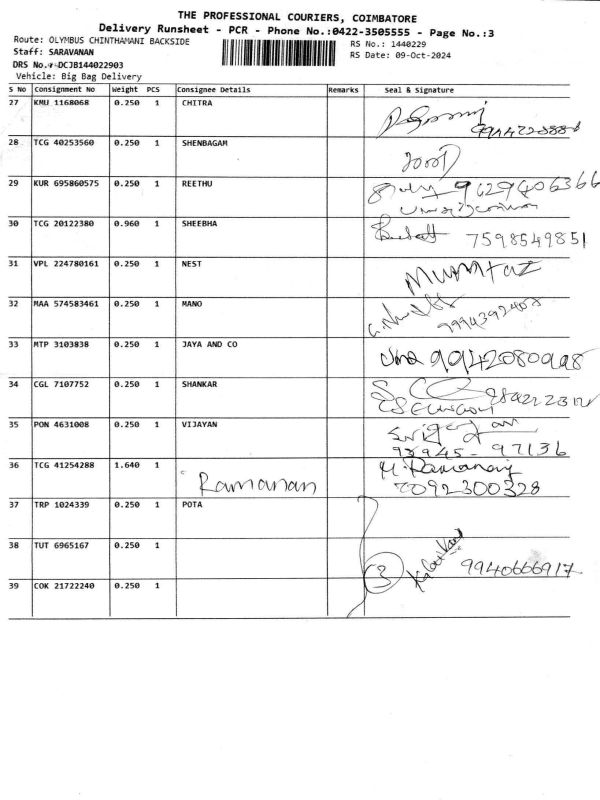 THE PROFESSIONAL COURIERS, COIMBATORE
Delivery Runsheet - PCR - Phone No.:0422-3505555 - Page No.:3
Route: OLYMBUS CHINTHAMANI BACKSIDE
RS No.: 1440229
Staff: SARAVANAN
RS Date: 09-Oct-2024
DRS No. DCJB144022903
Vehicle: Big Bag Delivery
S No Consignment No Weight PCS Consignee Details Remarks Seal & Signature
27 KMU 1168068 0.250 1 CHITRA
28 TCG 40253560 0.250 1 SHENBAGAM
29 KUR 695860575 0.250 1 REETHU 9629406366
30 TCG 20122380 0.960 1 SHEEBHA 7598549851
31 VPL 224780161 0.250 1 NEST MUMTAZ
32 MAA 574583461 0.250 1 MANO 9994392402
33 MTP 3103838 0.250 1 JAYA AND CO Uma
34 CGL 7107752 0.250 1 SHANKAR
35 PON 4631008 0.250 1 VIJAYAN
93945-97136
36 TCG 41254288 1.640 1 Ramanan M. Ramanan
7092300328
37 TRP 1024339 0.250 1 POTA
38 TUT 6965167 0.250 1 3 9940666917
39 COK 21722240 0.250 1